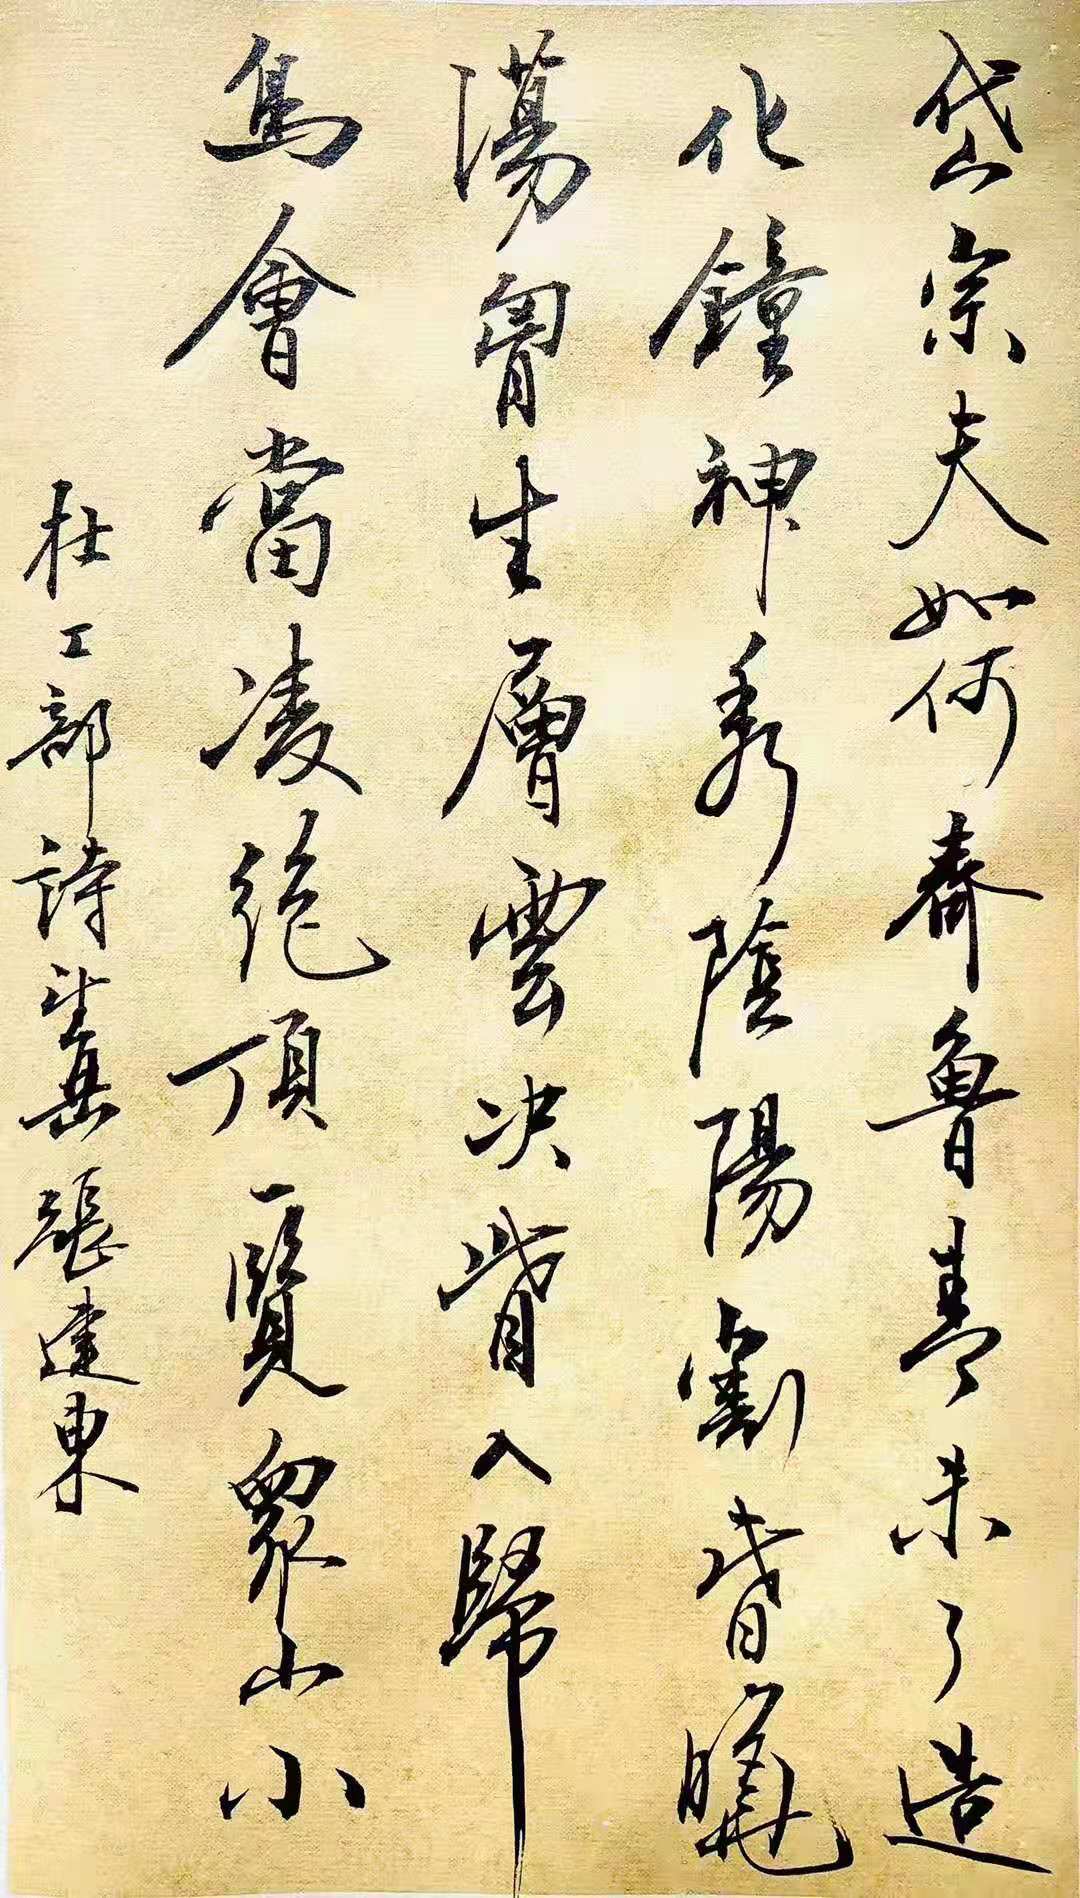 岱宗夫如何齊魯青未了造
化鐘神秀陰陽割昏曉
蕩胷生層雲决眥入歸
鳥會當凌絶頂一覽眾山小
杜工部詩望岳張建東